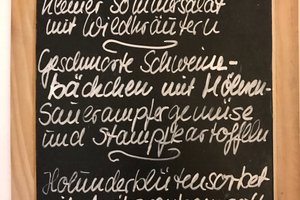 Kleiner Sommersalat
mit Wildkräutern
Geschmorte Schweine-
bäckchen mit Möhren-
Sauerampfergemüse
und Stampfkartoffeln
Holunderblütensorbet